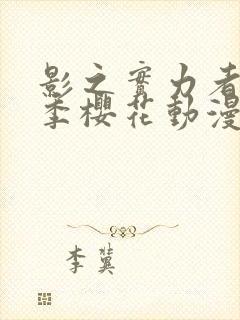 影之實力者
季櫻花動漫
李冀